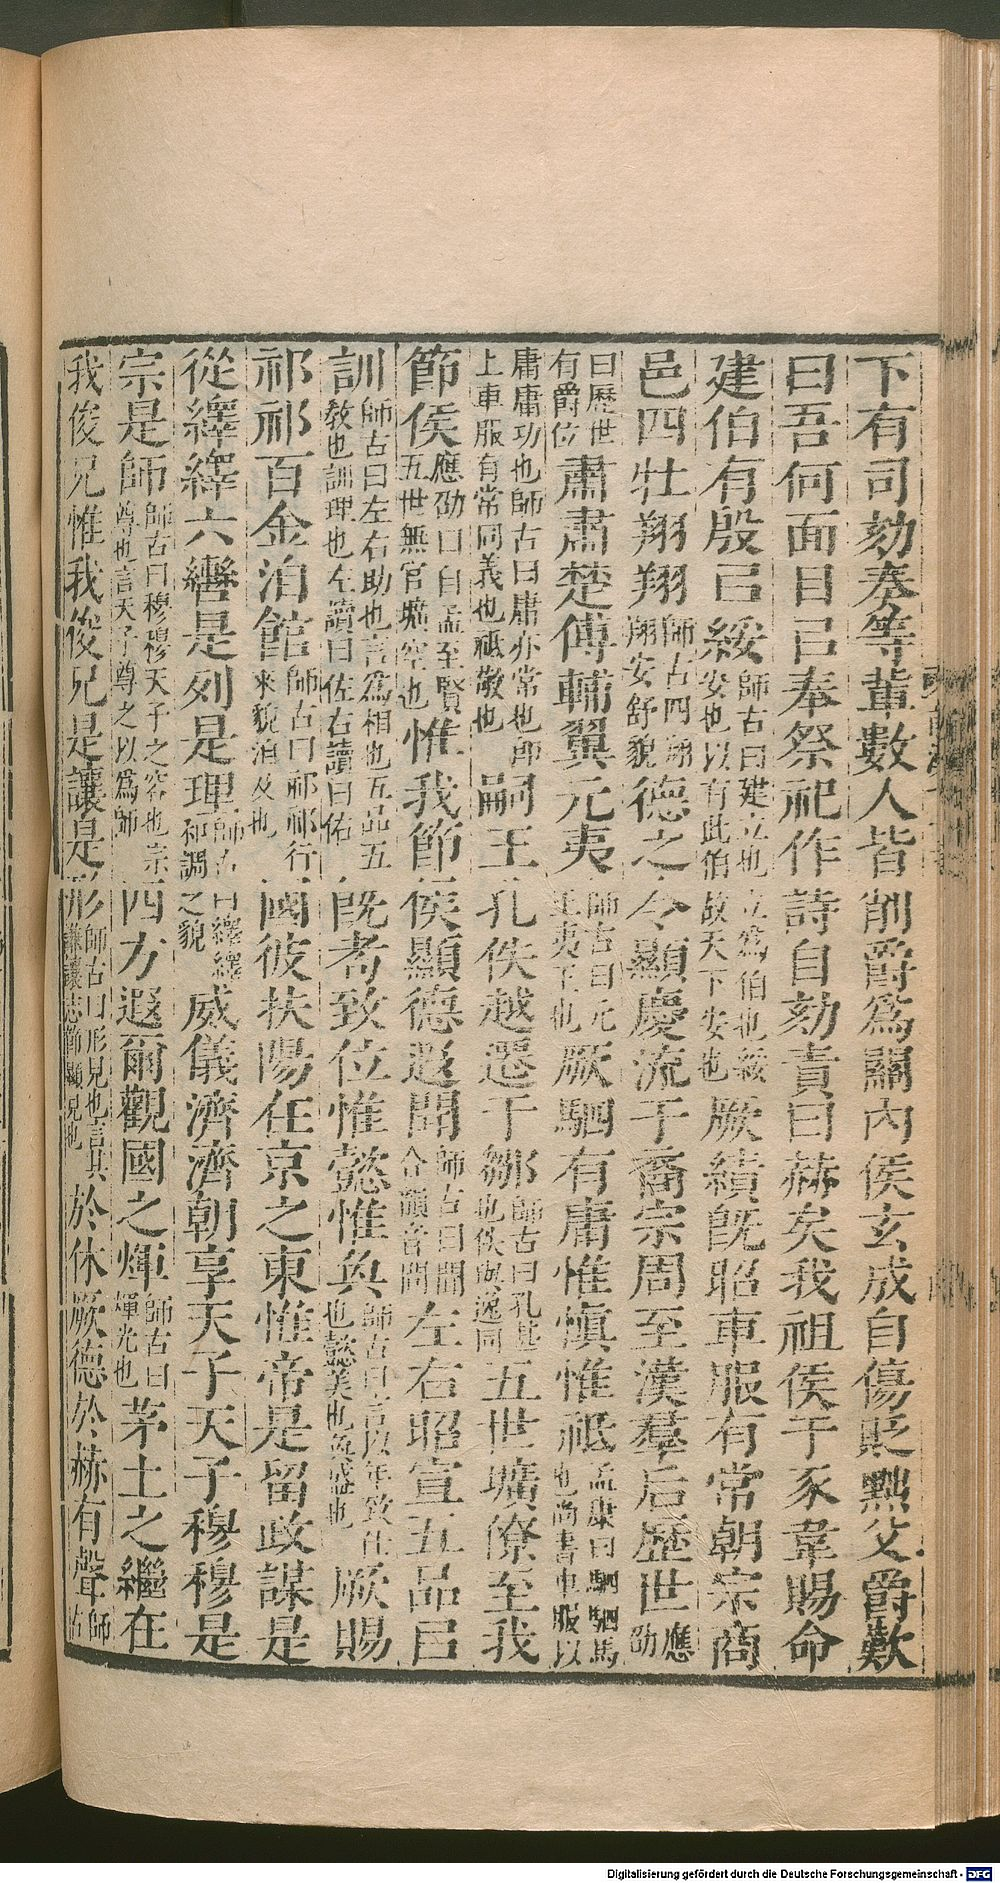 下有司劾奏等輩數人皆削爵爲關內侯玄成自傷貶黜父爵歎
曰吾何面目㠯奉祭祀作詩自劾責曰赫矣我祖侯于豕韋賜命
建伯有殷㠯綏師古曰建立也立爲伯也綏安也以有此伯故天下安也厥績旣昭車服有常朝宗商
邑四牡翔翔師古四翔翔安舒貌德之令顯慶流于裔宗周至漢羣后歷世應劭
曰歷世有爵位肅肅楚傅輔翼元夷師古曰元王夷王也厥駟有庸惟愼惟祗孟康曰駟駟馬也尚書車服以
庸庸功也師古曰庸亦常也卽上車服有常同義也祗敬也嗣王孔佚越遷于鄒師古曰孔甚也佚與逸同五世壙僚至我
節侯應劭曰自孟至賢五世無官壙空也惟我節侯顯德遐聞師古曰聞合韻音問左右昭宣五品㠯
訓師古曰左右助也言爲相也五品五敎也訓理也左讀曰佐右讀曰佑旣耇致位惟懿惟奐師古曰言以年致仕也懿美也奐盛也厥賜
祁祁百金洎館師古曰祁祁行來貌洎及也國彼扶陽在京之東惟帝是留政謀是
從繹繹六轡是列是理師古曰繹繹和調之貌威儀濟濟朝享天子天子穆穆是
宗是師師古曰穆穆天子之容也宗尊也言天子尊之以爲師四方遐爾觀國之煇師古曰煇光也茅土之繼在
我俊兄惟我俊兄是讓是形師古曰形見也言其謙讓志節顯見也於休厥德於赫有聲師古